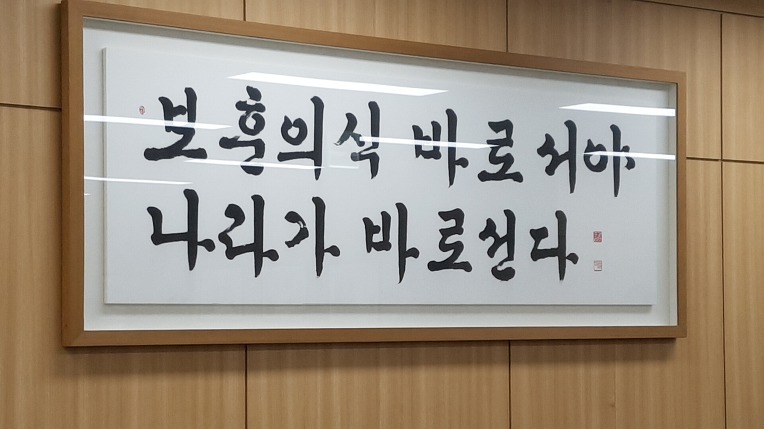 보훈의식 바로 서야
나라가 바로선다